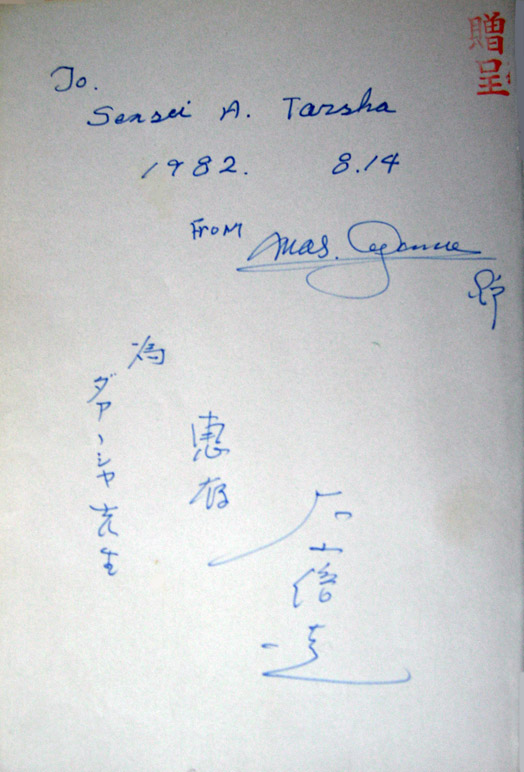 贈呈
To.
Sensei A. Tarsha
1982. 8.14
From Mas.
為
ダァーシャ先生
恵存